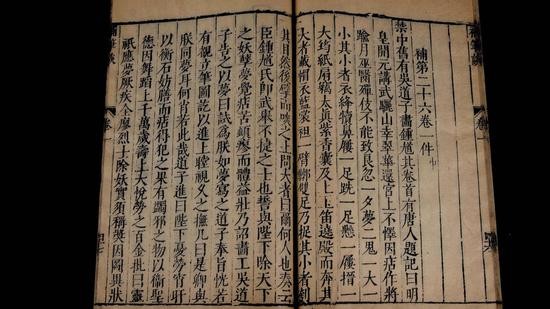 補筆談
卷一
補第二十六卷一件
禁中舊有吳道子畫鍾馗其卷首有唐人題記曰明
皇開元講武驪山幸翠華還宮上不懌因痁作將
踰月巫醫殫伎不能致良忽一夕夢二鬼一大一
小其小者衣絳犢鼻屨一足跣一足懸一屨搢一
大筠紙扇竊太真紫香囊及上玉笛遶殿而奔其
大者戴帽衣藍裳袒一臂鞹雙足乃捉其小者刳
其目然後擘而啖之上問大者曰爾何人也奏云
臣鍾馗氏即武舉不捷之士也誓與陛下除天下
之妖孽夢覺痁苦頓瘳而體益壯乃詔畫工吳道
子告之以夢曰試為朕如夢寫之道子奉旨恍若
有覩立筆圖訖以進上瞠視久之撫几曰是卿與
朕同夢耳何肖若此哉道子進曰陛下憂勞宵旰
以衡石妨膳而痁得犯之果有蠲邪之物以衛聖
德因舞蹈上千萬歲壽上大悅勞之百金批曰靈
祇應夢厥疾全瘳烈士除妖實須稱奬因圖異狀
補筆談
卷一